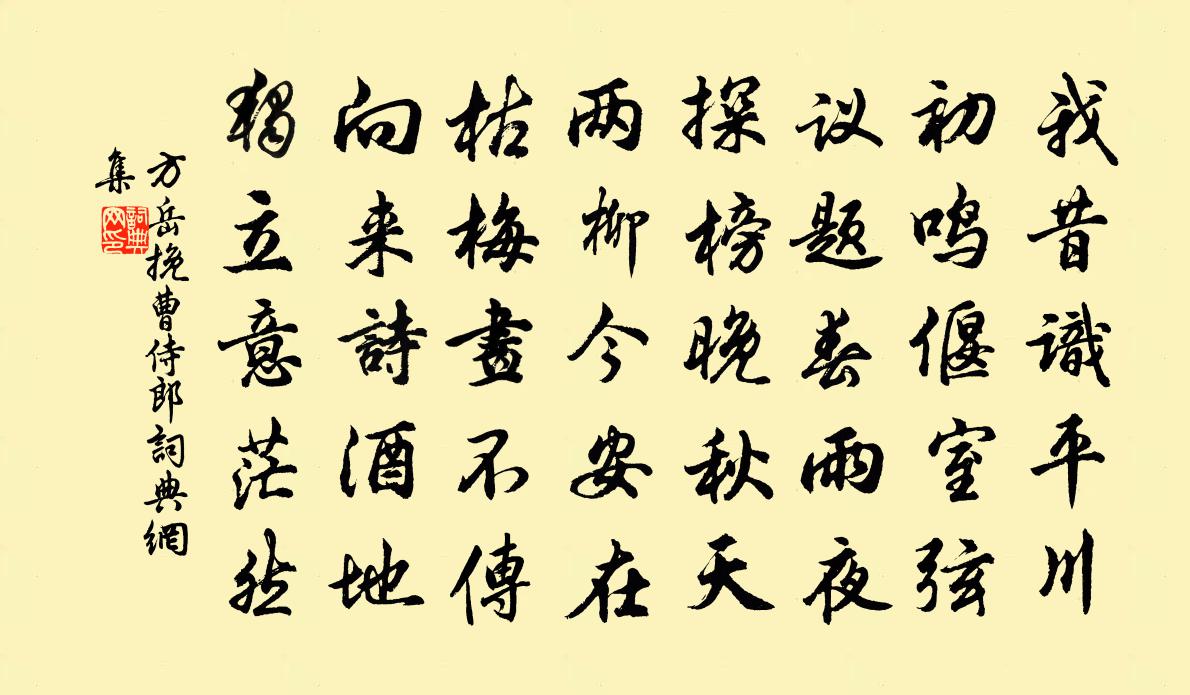 我昔識平川
初鳴偃室弦
议题春雨夜
探榜晚秋天
两柳今安在
枯梅畫不傳
向来詩酒地
獨立意茫然
方岳挽曹侍郎詞典網
集
詞典
网印